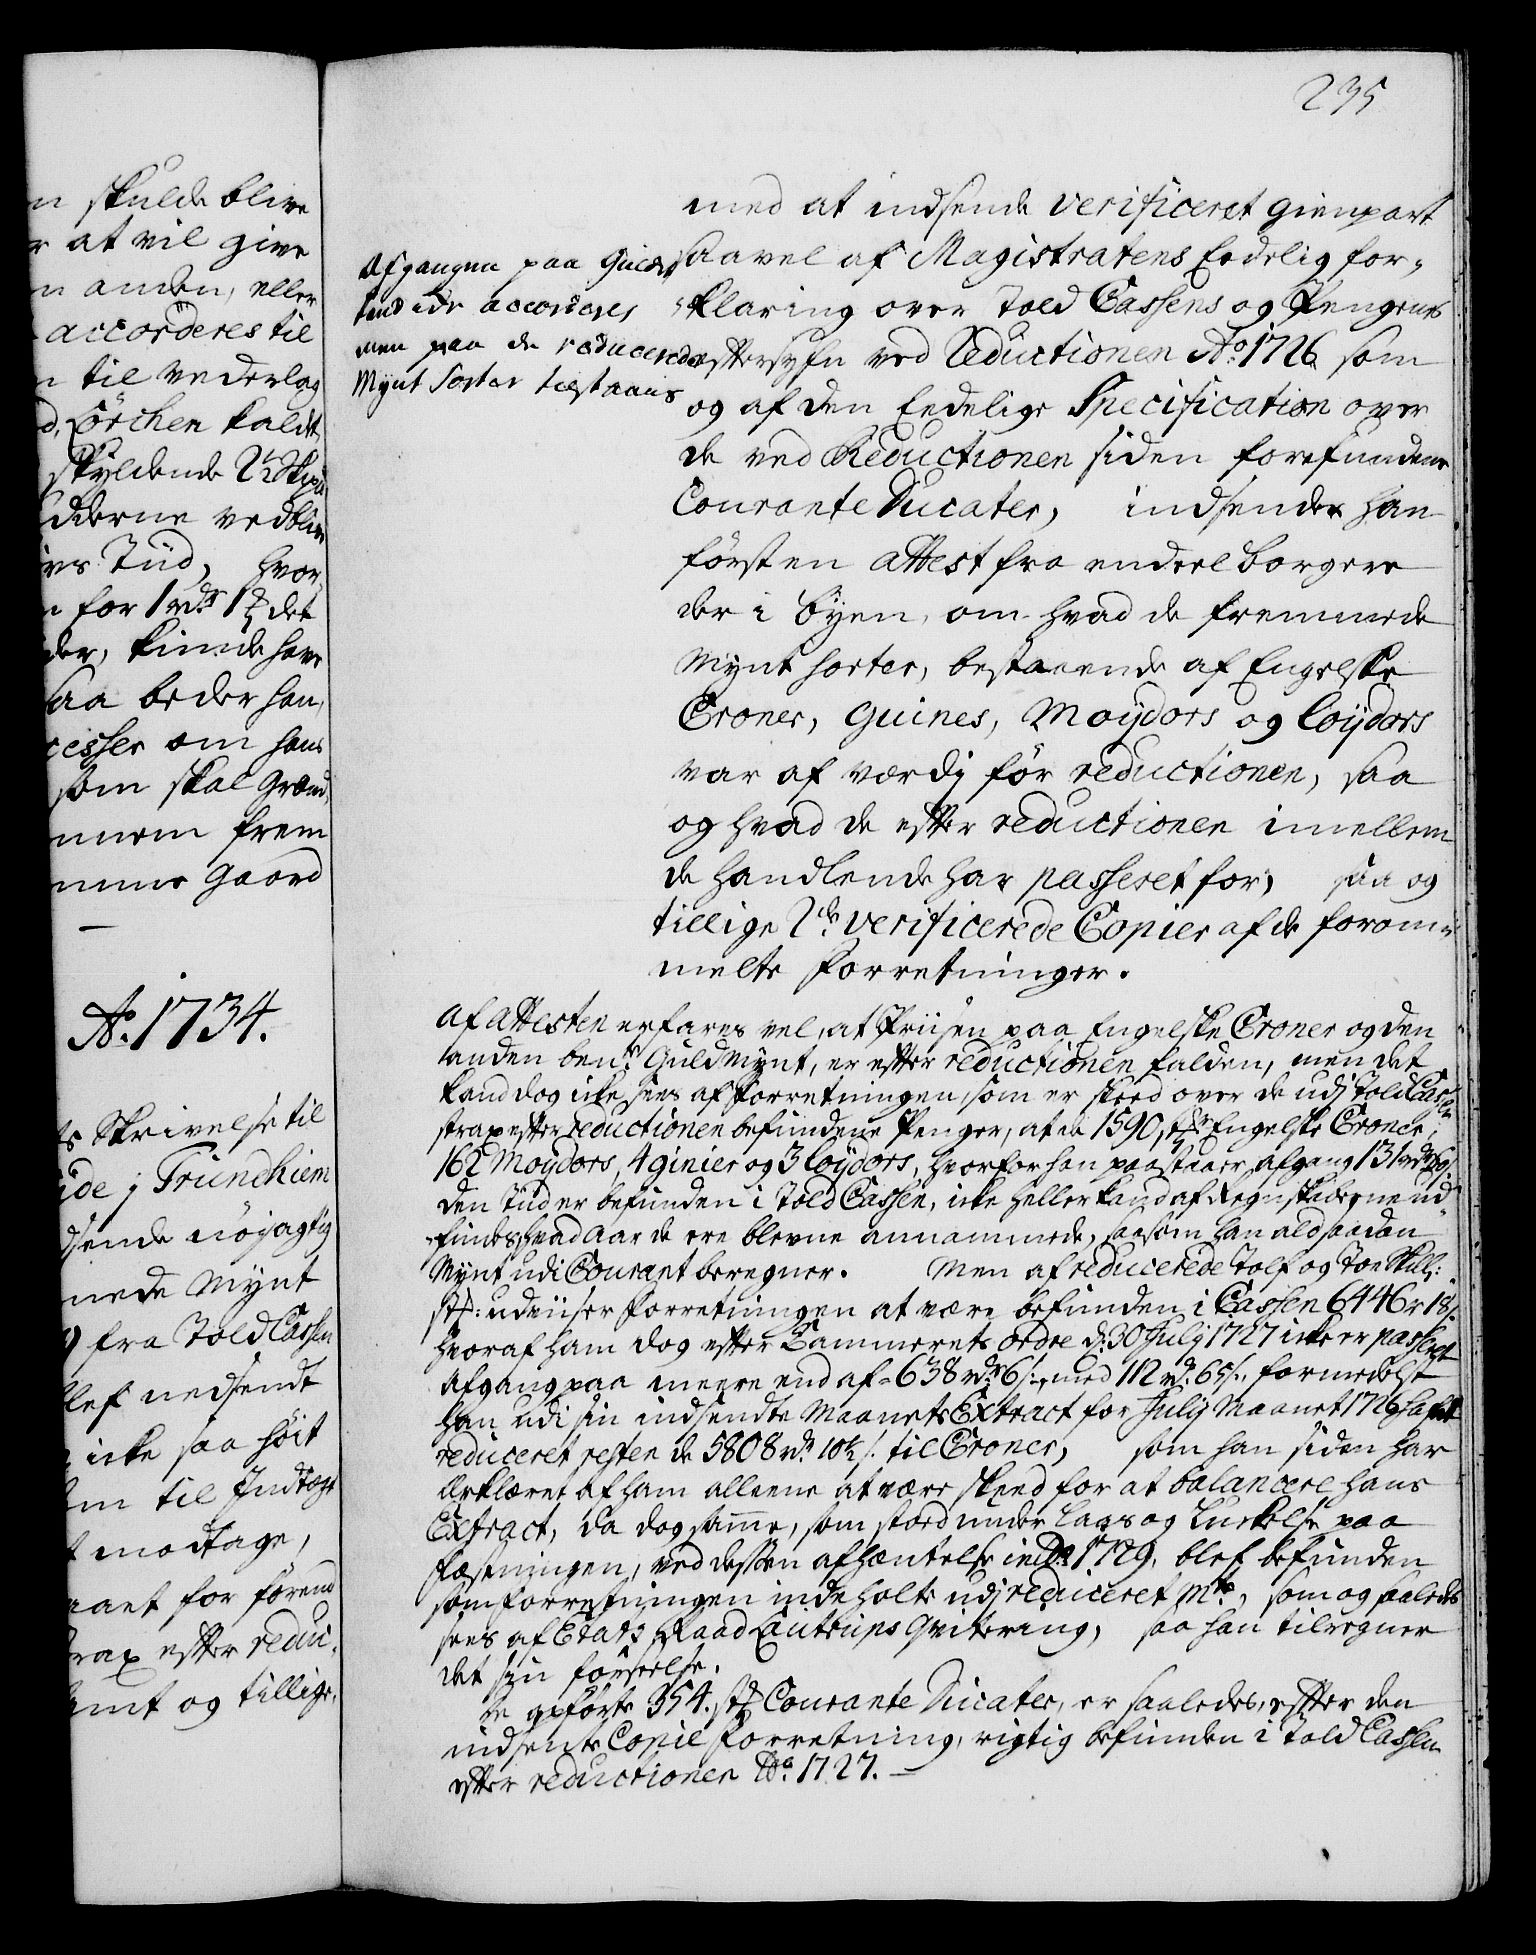 235
n skulde blive
r at vil give
n anden, eller
accorderes til
n til vederlag
d, Lörchen kaldet
skyldende 2½
dderne vedblive
ivs Tiid, hvor,
n for 1 rdr 1 ₰ det
der, kunde have
saa beder han,
cesser om hans
som skal
nnem frem
nnus Gaard
—
Ao. 1734.
ts Skrivelse til
ide j Trundhiem
dsende nöjagtig
mede Mynt
fra Told Cassen
blef nedsendt
icke saa höit
om til Indtægt
t modtage,
aaet for förend
trax efter reduc,
amt og tillige,
Afgangen paa
kand icke accorderes
men paa de reducerede
Mynt Sorter tilstaaes
med at indsende verificeret gienpart
saavel af Magistratens Eedelig for,
klaring over Told Cassens og Pengenes
eftersyfn ved Reductionen Ao. 1726 som
og af den Eedelige Specification over
de ved Reductionen siden forefundene
Courante Ducater, indsender han
först en attest fra endeel borgere
der i Byen, om hvad de fremmede
Mynt sorter, bestaaende af Engelske
Croner, Guines, Moijdors og Loijdors
var af værdj för reductionen, saa
og hvad de efter reductionen imellem
de handlende har passeret for, saa og
tillige 2de verificerede Copier af de forom¬
melte Forretninger.
Af attesten erfares vel, at Priisen paa Engelske Croner og den
anden bente Guld Mynt, er efter reductionen falden, men det
kand dog icke sees af Forretningen, som er skeed over de udj Told Cassen
strax efter reductionen befundene Penger, at en 1590 st Engelske Croner,
162 Moijdors, 4 ginier og 3 Loijdors, hvorfor han paastaaer afgang 131 rdr
den Tiid er befunden i Told Cassen, icke heller kand af Regnskaberne ud¬
findes hvad Aar de ere blevne annammede, saasom han ald saadan
Mynt udi Courant beregner. Men af reducerede Tolf og Toe Skill:
st: udviiser Forretningen at være befunden i Cassen 6446 r 18 s
hvoraf ham dog efter Cammerets ordre d: 30 Julij 1727 icke er passeret
afgang paa meere end af 638 rdr 6 s., med 112 rd. 65 s. formedelst
han udi sin indsendte Maanets Extract for Julij Maanet 1726 hafde
reduceret resten de 5808 rdr 10½ s. til Croner, som han siden har
Erklæret af ham alleene at være skeed for at balancere hans
Extract, da dog samme, som stoed under Laas og Lukkelse paa
Fæstningen, ved dessen afhæntelse in Ao 1729, blef befunden
som forretningen indeholte udj reduceret Mte, som og saaledes
sees af Etatz Raad Lautrups Qvitering, saa han tilregner
det sin forseelse.
De opförte 354. st Courante Ducater, er saaledes, efter den
indsente Copie Forretning, rigtig befunden i Told Cassen
efter reductionen Ao. 1727. —